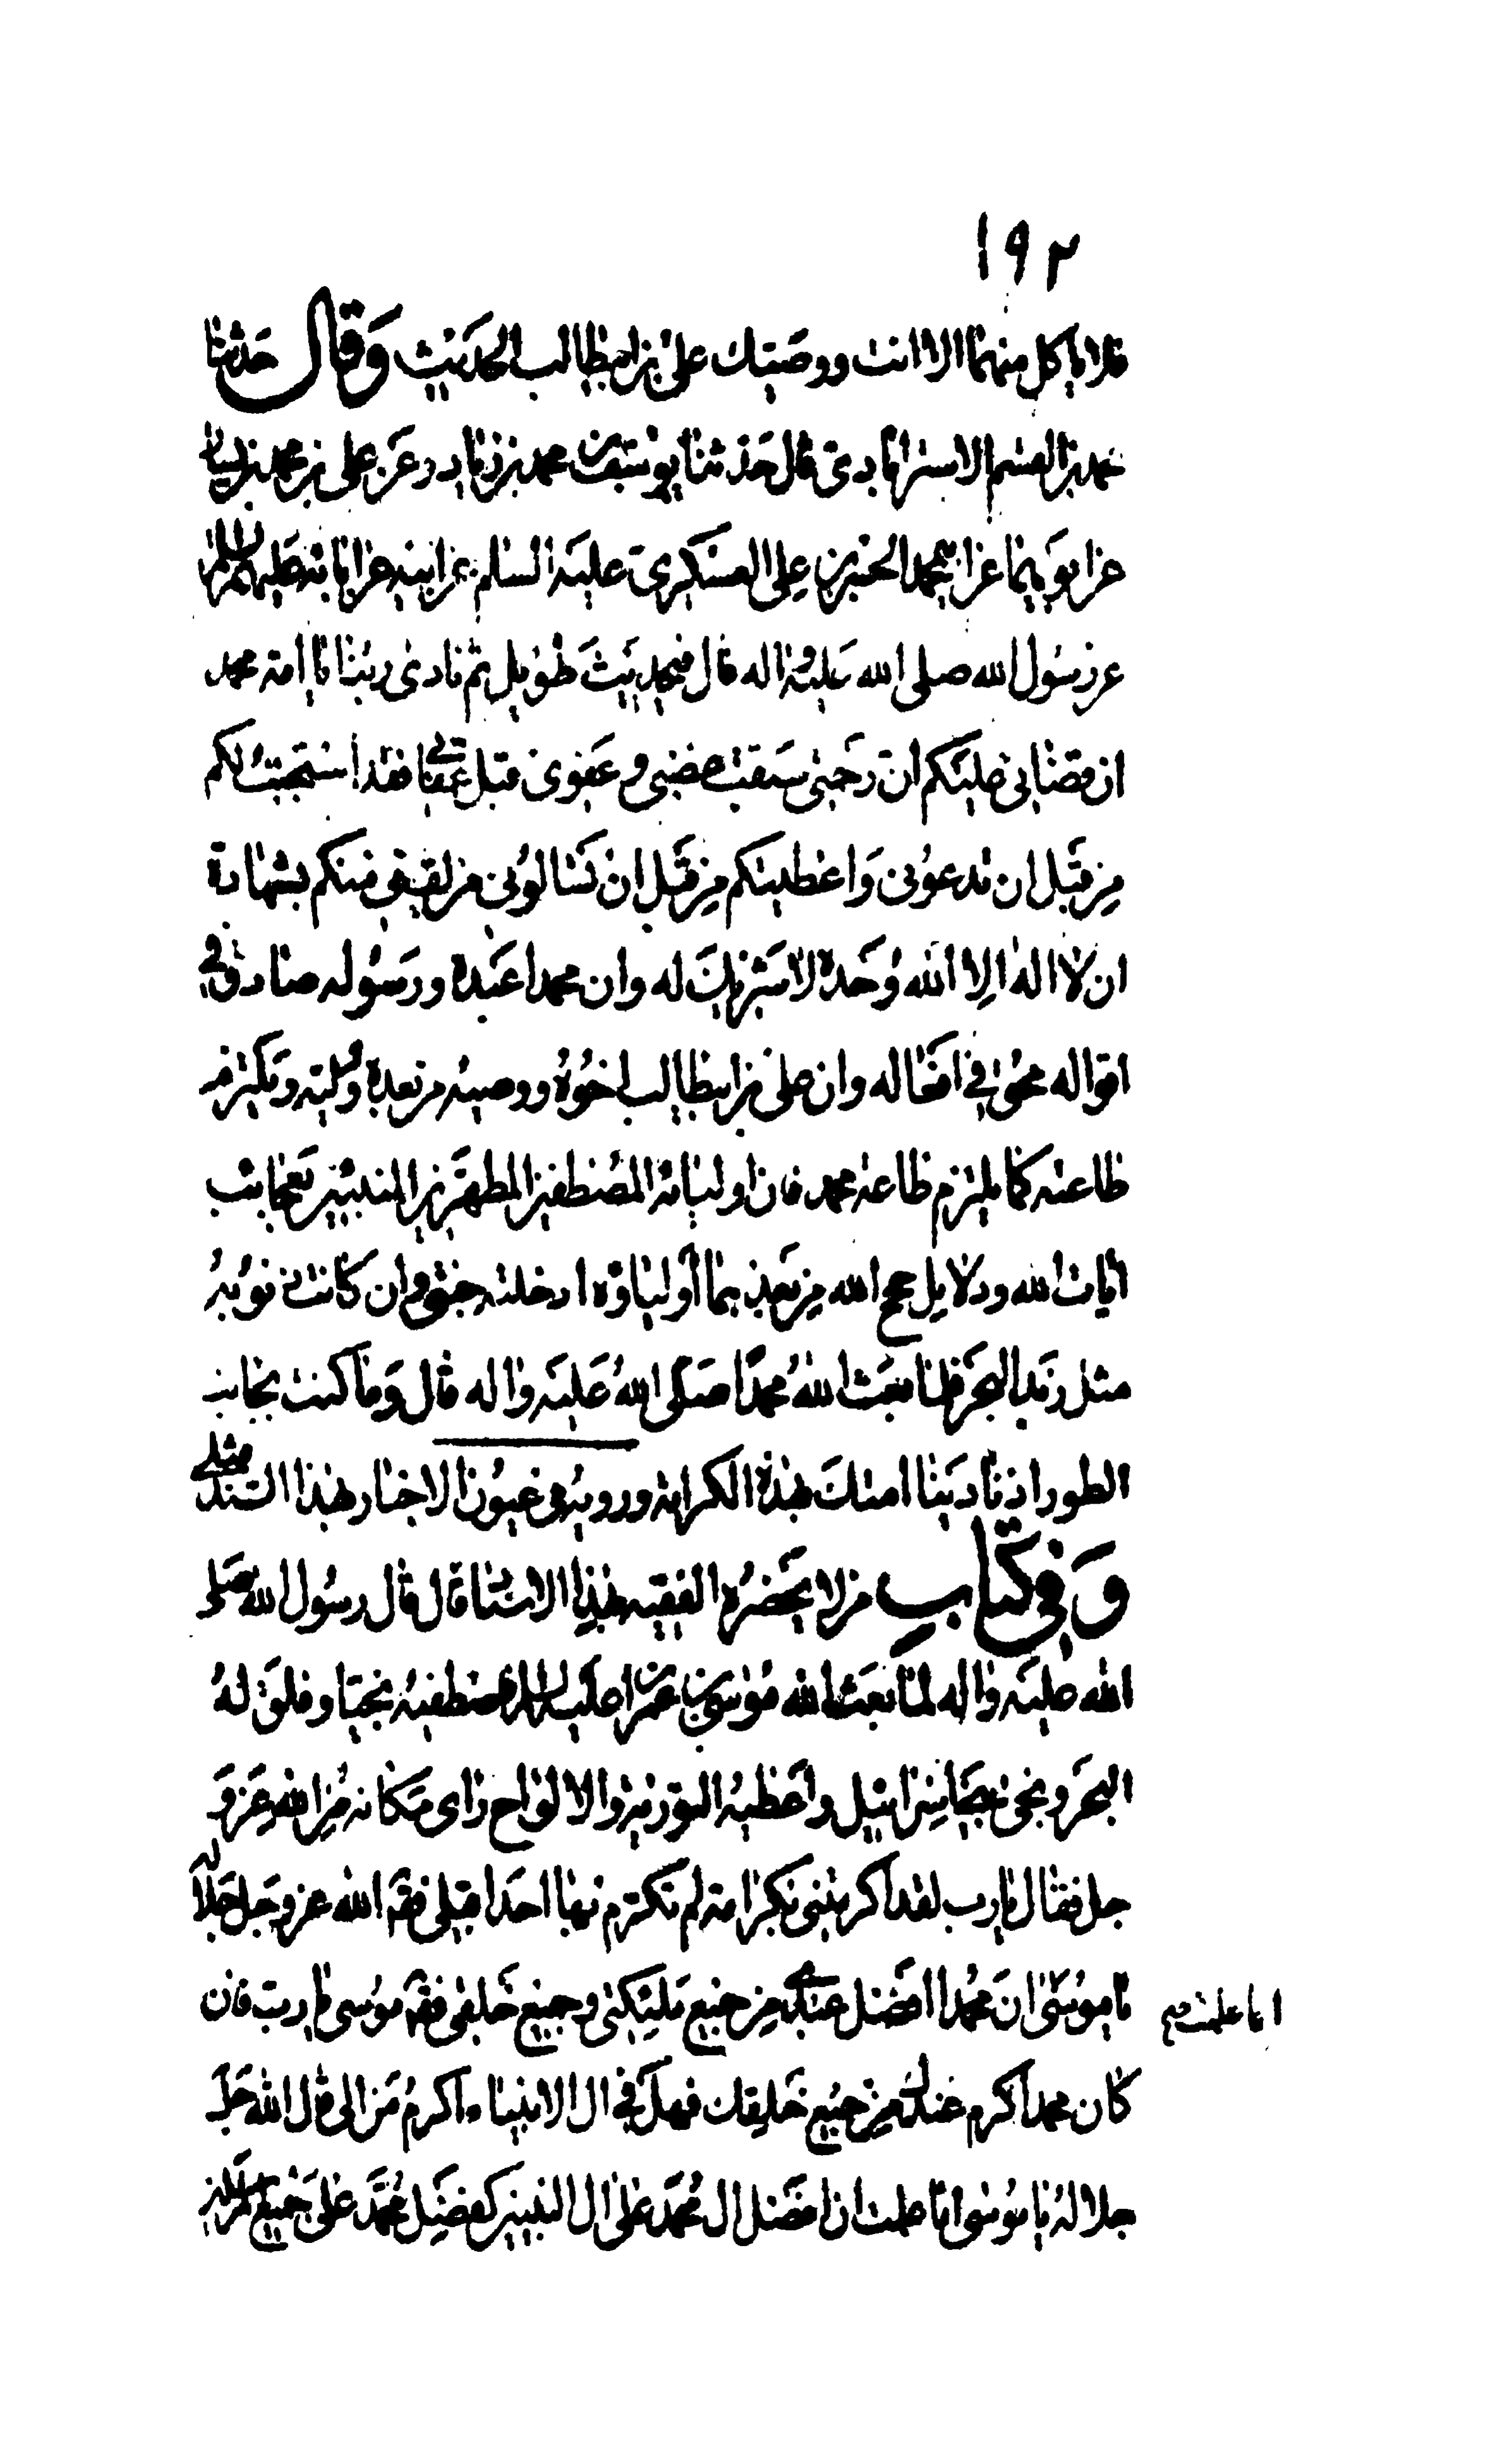 ١٩٢
فلا ياكل منهما الا انت ووصيك على بن ابيطالب الحديث وقال حدثنا
محمد بن القسم الاسترابادى قال حدثنا يوسف بن محمد بن زياد وعن على بن محمد بن سيار
عن ابويهما عن ابيمحمد الحسن بن على العسكرى عليه السلم عن ابيه عن ابائه عليهم السلم
عن رسول الله صلى الله عليه واله قال فيحديث طويل ثم نادى ربنا يا امة محمد
ان قضائى عليكم ان رحمتى سبقت غضبى وعفوى قبل عقابى فقد استجبت لكم
من قبل ان تدعونى واعطيتكم من قبل ان تسالونى من لقينى منكم بشهادة
ان لا اله الا الله وحده لا شريك له وان محمدا عبده ورسوله صادق فى
اقواله محق فى افعاله وان على بن ابيطالب اخوه ووصيه من بعده ووليه ويلتزم
طاعته كما يلتزم طاعة محمد فان اوليائه المصطفين المطهرين المنبئين بعجايب
ايات الله ودلايل حجج الله من بعدهما اولياؤه ادخلته جنتى وان كانت ذنوبه
مثل زبد البحر فلما بعث الله محمدا صلى الله عليه واله قال وما كنت بجانب
الطور اذ نادينا امتك بهذه الكرامة ورويته فى عيون الاخبار بهذا السند مثله
وفى كتاب من لا يحضره الفقيه بهذا الاسناد قال قال رسول الله صلى
الله عليه واله لما بعث الله موسى بن عمران عليه السلم واصطفيه نجيا وفلق له
البحر ونجى بنى اسرائيل واعطيه التورية والالواح راى مكانه من الله عز و
جل فقال يا رب لقد اكرمتنى بكرامة لم تكرم بها احدا قبلى فقال الله عز وجل جلاله
يا موسى ان محمدا افضل عندى من جميع ملئكتى وجميع خلقى فقال موسى يا رب فان
اما علمت صح
كان محمد اكرم عندك من جميع خلقك فهل فى ال الانبياء اكرم من الى قال الله جل
جلاله يا موسى اما علمت ان فضل ال محمد على ال النبيين كفضل محمد على جميع المرسلين